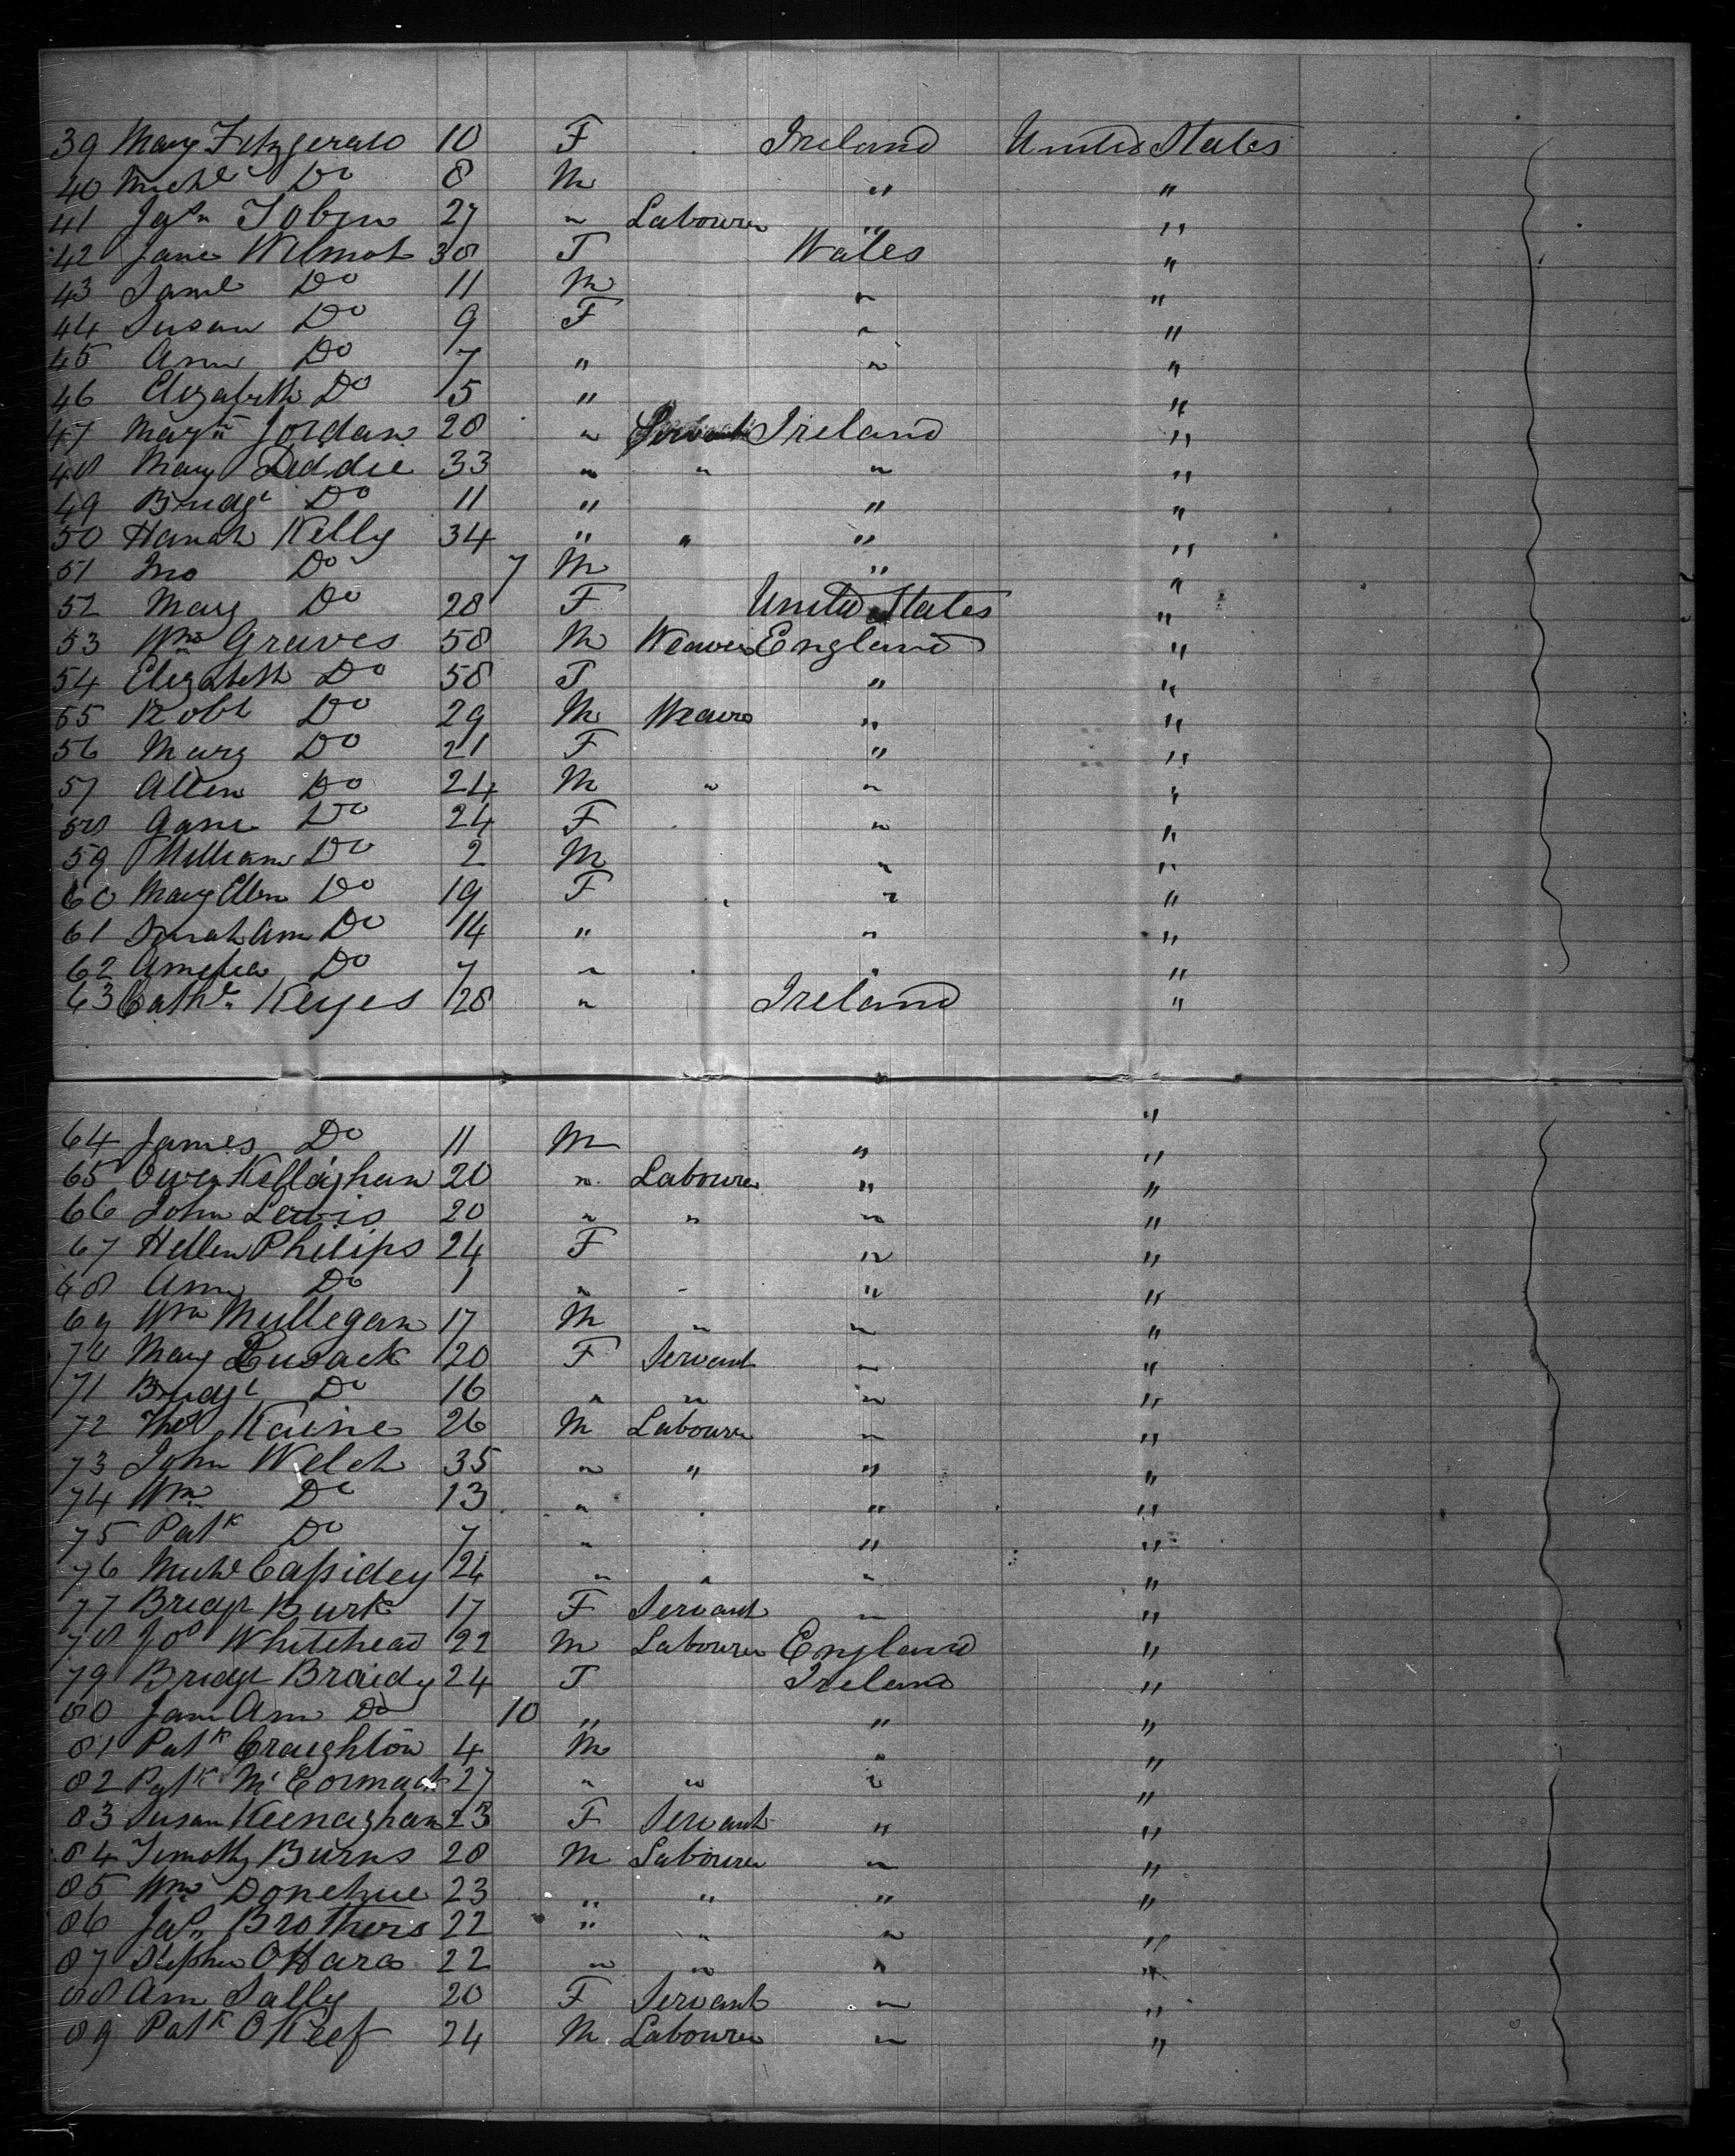 39 Mary Fitzgerald 10 F Ireland United States
40 Michl Do 8 M " "
41 Jas Tobin 27 " Labourer " "
42 Jane Wilmot 38 F Wales "
43 Saml Do 11 M " "
44 Susan Do 9 F " "
45 Ann Do 7 " " "
46 Elizabeth Do 5 " "
47 Margt Jordan 28 " Servant Ireland "
48 Mary Deddie 33 " " " "
49 Bridgt Do 11 " " "
50 Hanah Kelly 34 " " " "
51 Jno Do 7 M " "
52 Mary Do 28 F United States "
53 Wm Graves 58 M Weaver England "
54 Elizabeth Do 58 F " "
55 Robt Do 29 M Weaver " "
56 Mary Do 21 F " "
57 Allen Do 24 M " " "
58 Jane Do 24 F " "
59 William Do 2 M " "
60 Mary Ellen Do 19 F " "
61 Sarah Ann Do 14 " " "
62 Amelia Do 7 " " "
63 Cathe Keyes 28 " Ireland "
"
64 James Do 11 M " "
65 Owen Kellaghan 20 " Labourer " "
66 John Lewis 20 " " " "
67 Hellen Philips 24 F " "
68 Ann Do 1 " " "
69 Wm Mullegan 17 M " " "
70 Mary Cusack 20 F Servant " "
71 Bridgt Do 16 " " " "
72 Thos Kaine 26 M Labourer " "
73 John Welch 35 " " " "
74 Wm Do 13 " " "
75 Patk Do 7 " " "
76 Michl Cassidey 24 " " " "
77 Bridgt Burk 17 F Servant " "
78 Jos Whitehead 22 M Labourer England "
79 Bridgt Braidy 24 F Ireland "
80 Jane Ann Do 10 " " "
81 Patk Craighton 4 M " "
82 Patk McCormack 27 " " " "
83 Susan Keenaghan 23 F Servant " "
84 Timothy Burns 28 M Labourer " "
85 Wm Donehue 23 " " " "
86 Jas Brothers 22 " " " "
87 Stephen OHara 22 " " " "
88 Ann Sally 20 F Servant " "
89 Patk OKeef 24 M Labourer " "